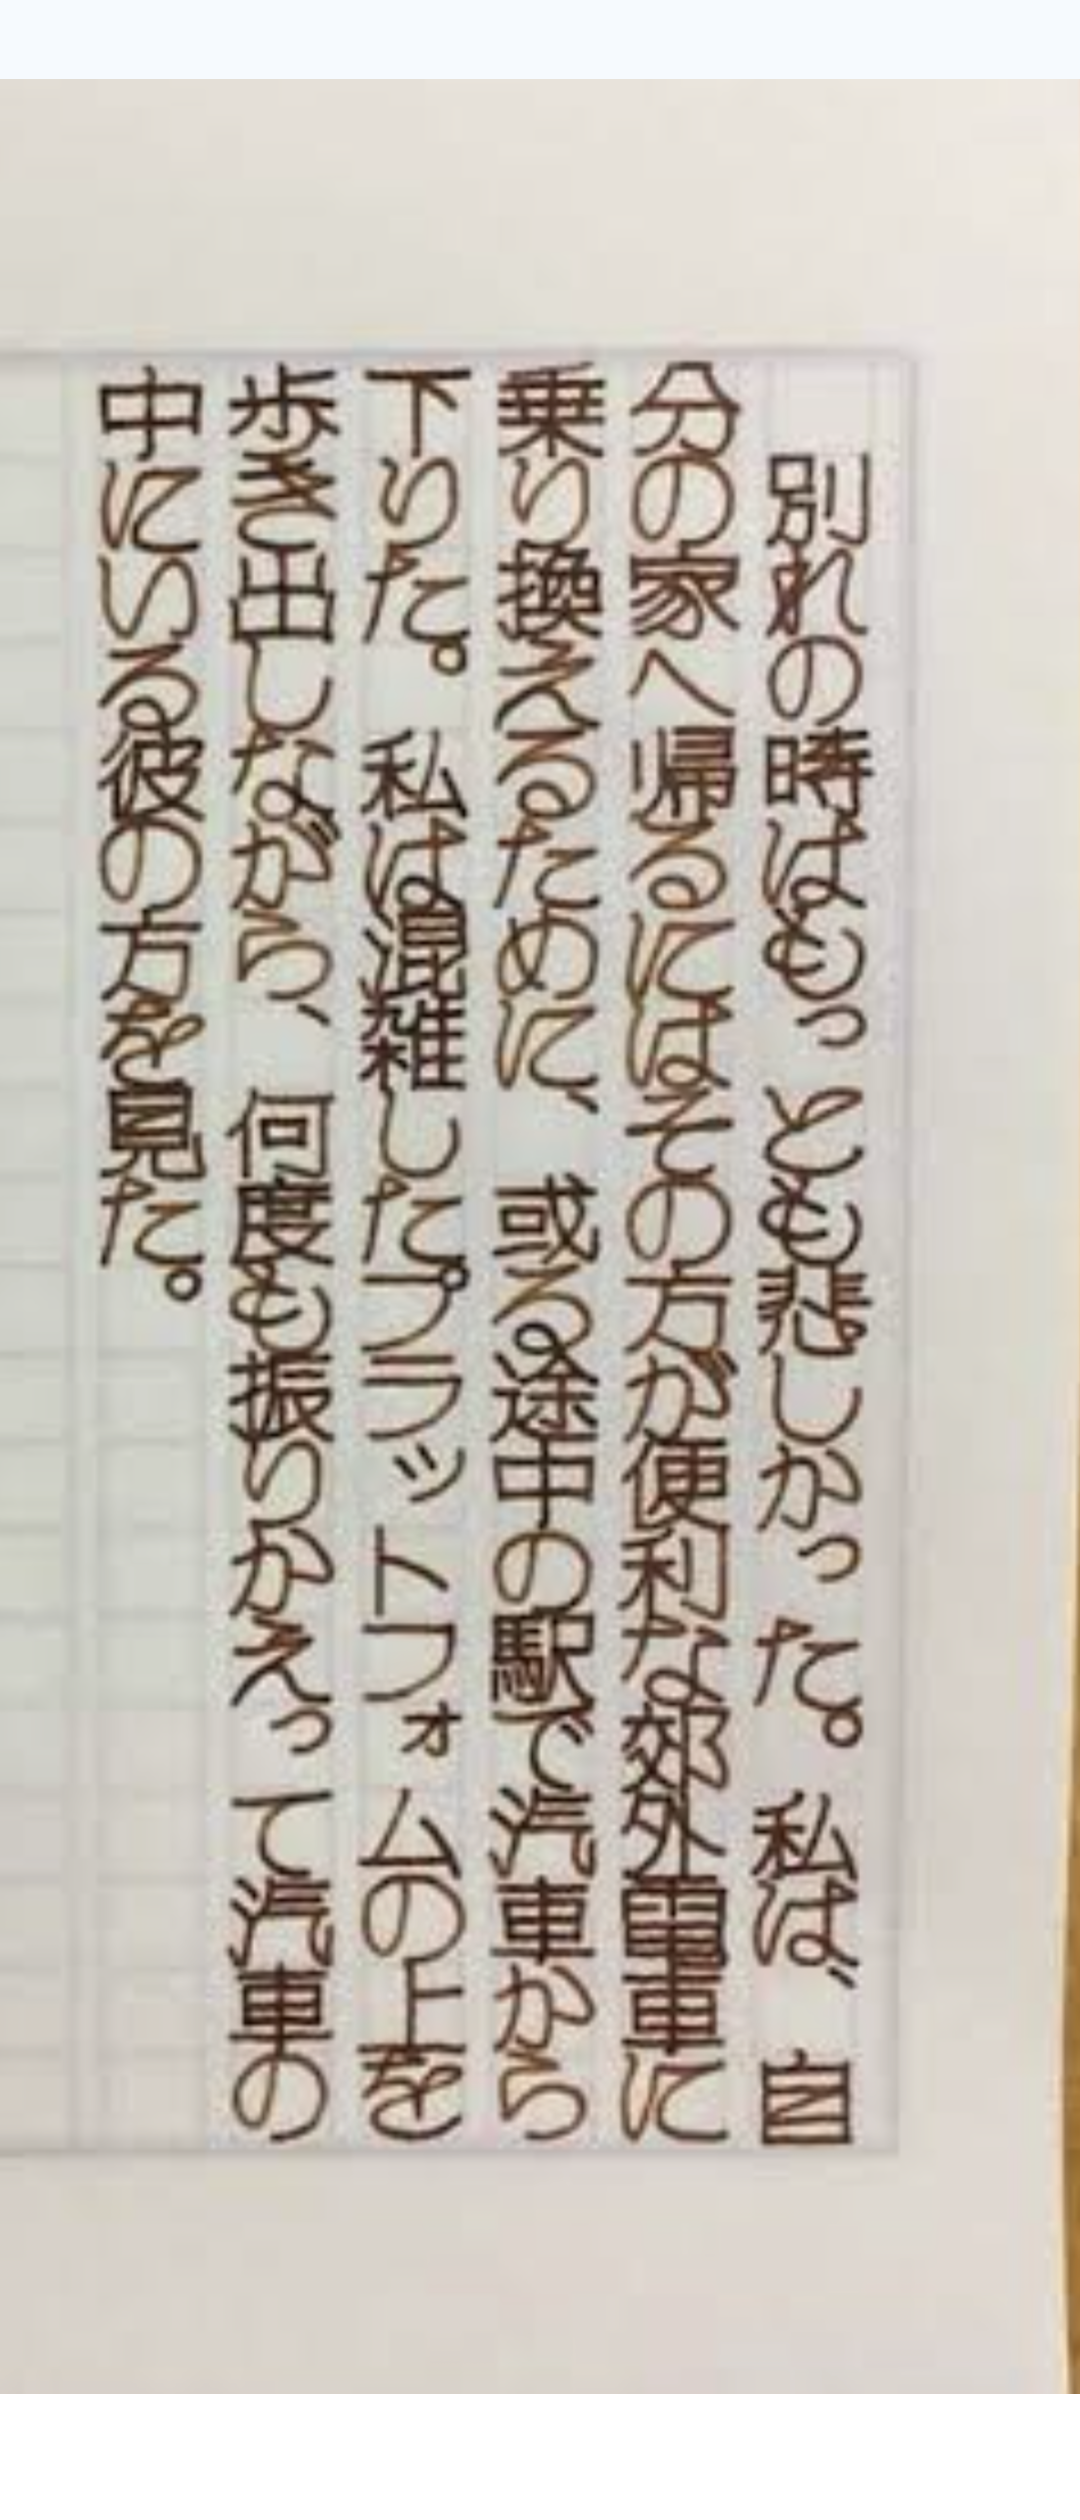 別れの時はもっとも悲しかった。私は、自
分の家へ帰るにはその方が便利な郊外電車に
乗り換えるために、或る途中の駅で汽車から
下りた。私は混雑したプラットフォムの上を
歩き出しながら、何度も振りかえって汽車の
中にいる彼の方を見た。